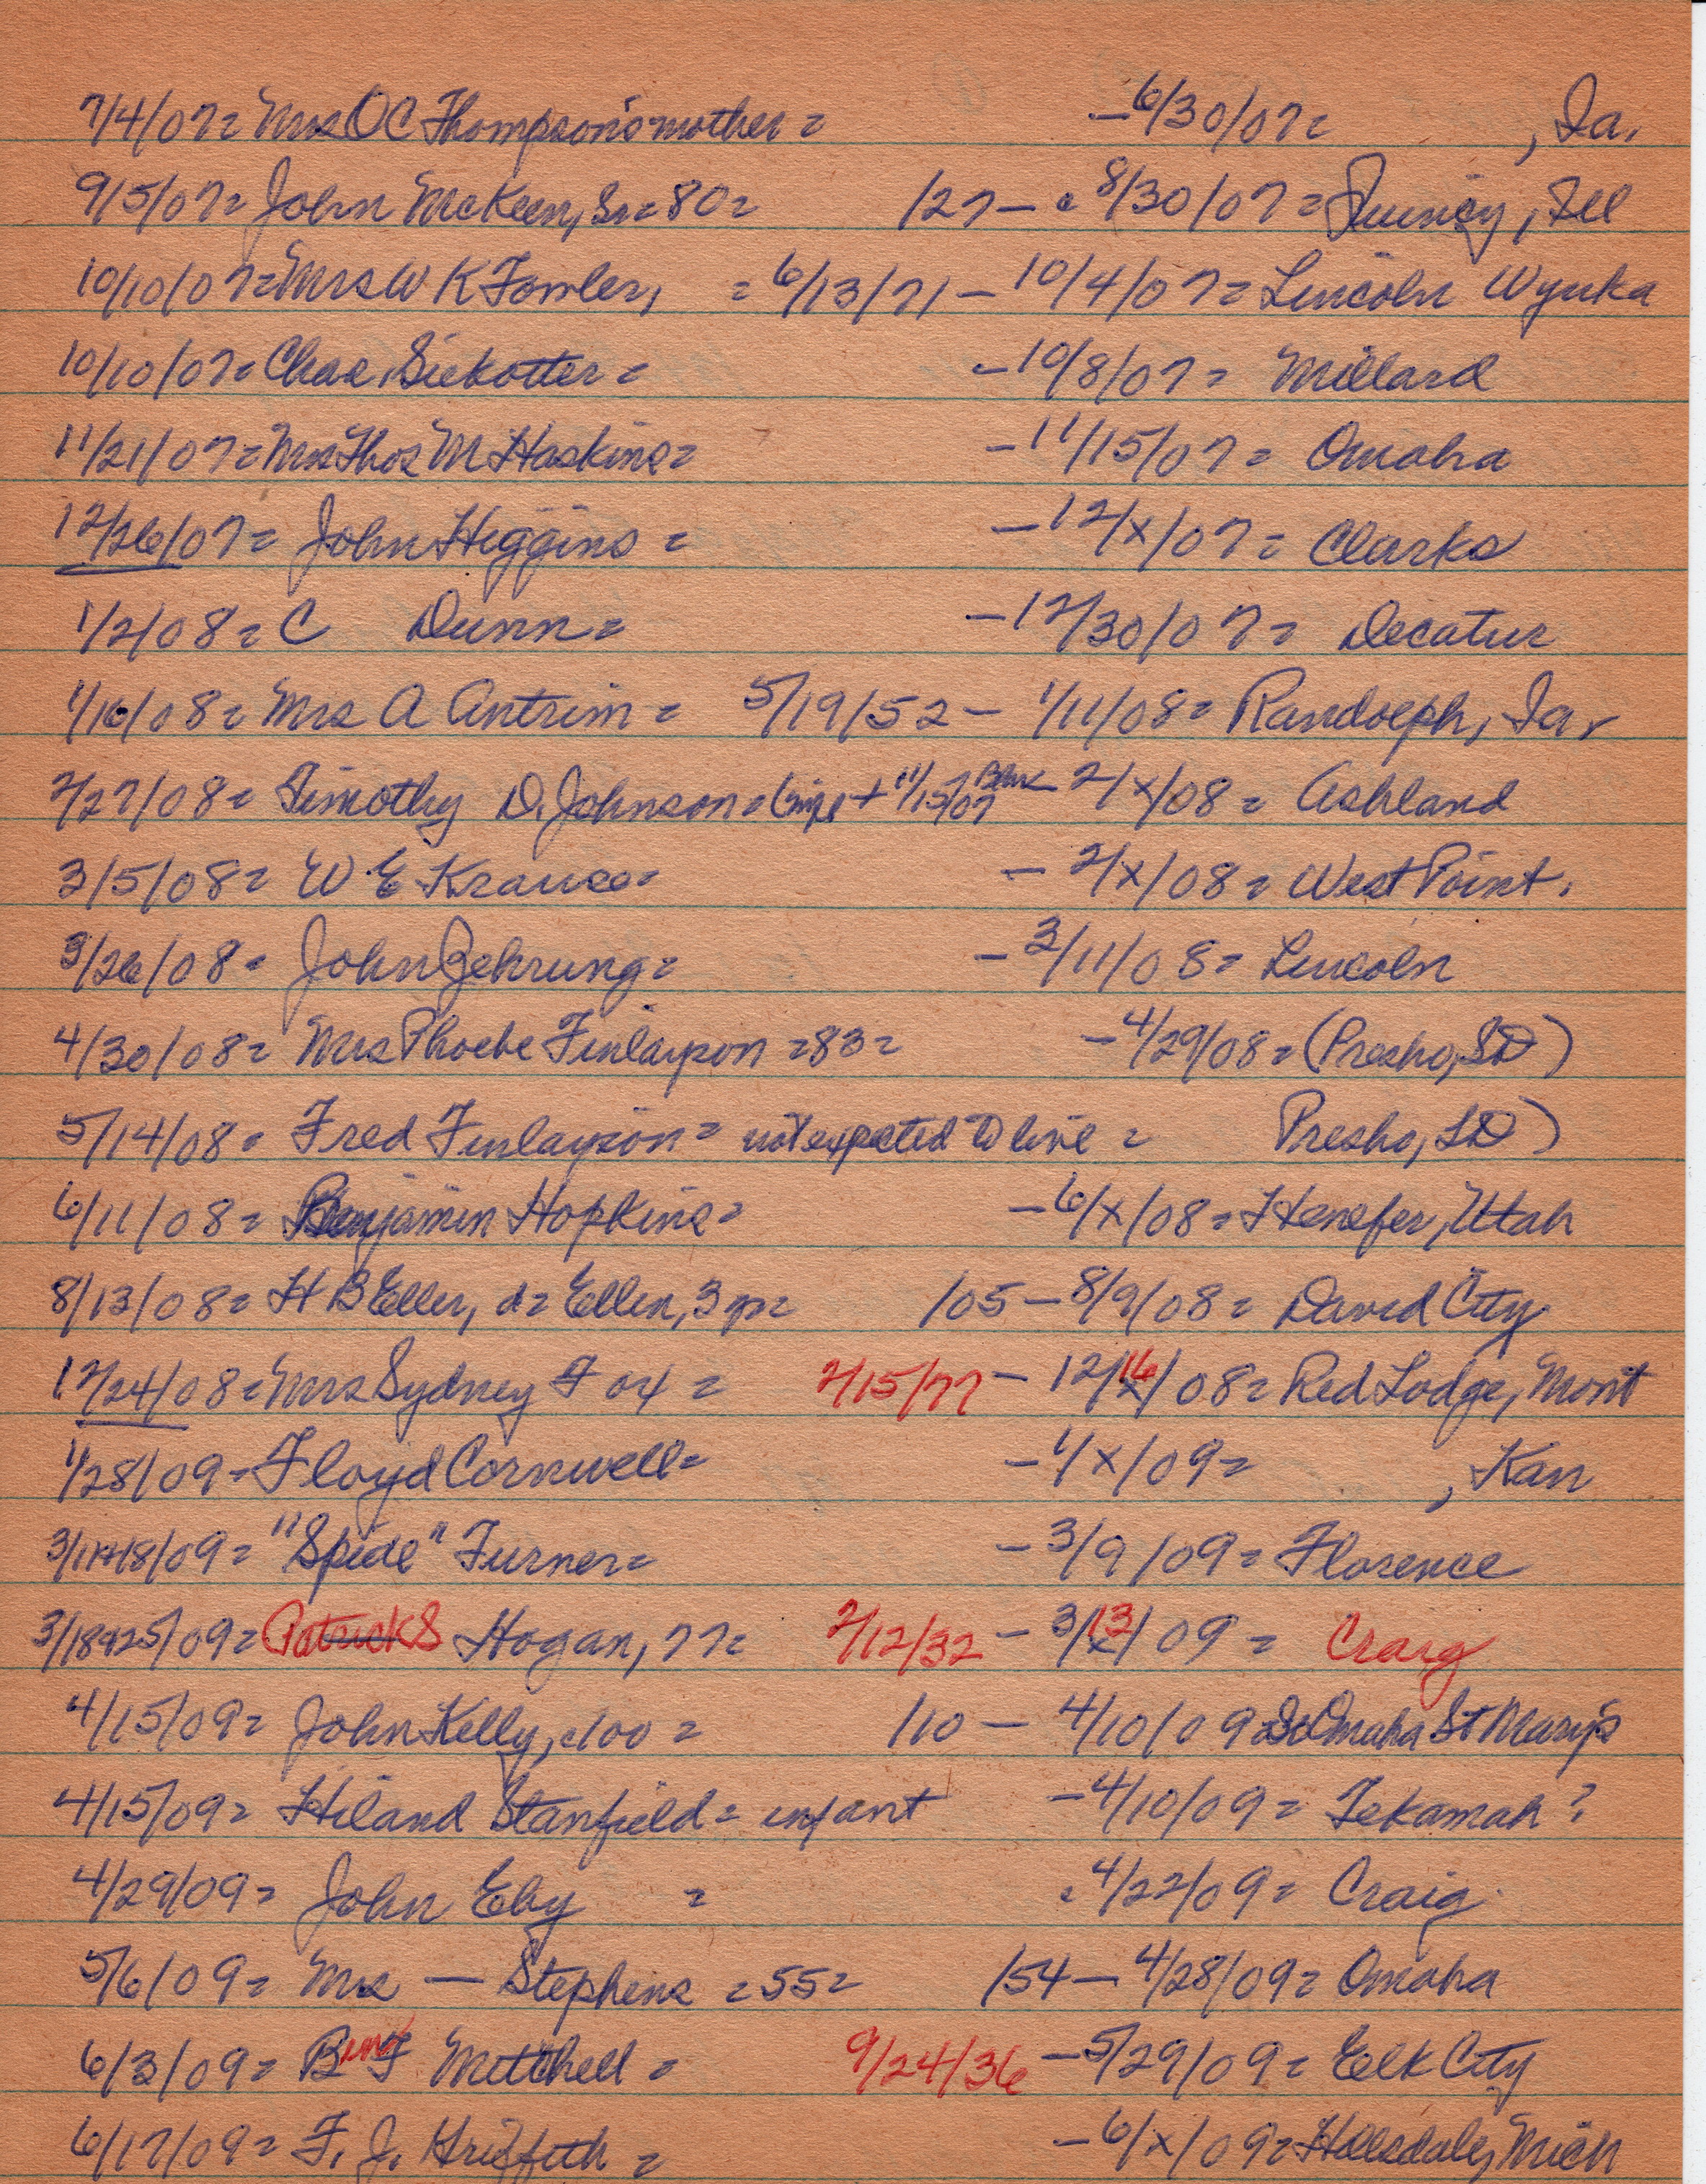 7/4/07= Mrs O C Thompson's mother = -6/30/07= , Ia.
9/5/07= John McKeen, Sr= 80= /27- 8/30/07= Quincy, Ill
10/10/07= Mrs W K Fowler, = 6/13/71 - 10/4/07= Lincoln Wyuka
10/10/07= Chas. Siekotter = -10/8/07= Millard
11/21/07= Mrs Thos M Haskins= -11/15/07= Omaha
12/26/07= John Higgins = -12/x/07= Clarks
1/2/08= C Dunn= -12/30/07= Decatur
1/16/08= Mrs A Antrim= 5/19/52- 1/11/08= Randolph, Ia.
2/27/08= Timothy D. Johnson= + 11/15/07 - 2/x/08= Ashland
3/5/08= W E Krause= - 2/x/08= West Point.
3/26/08= John Gehrung= -3/11/08= Lincoln
4/30/08= Mrs Phoebe Finlayson =83= -4/29/08= (Presho, SD)
5/14/08= Fred Finlayson= not expected to live = Presho, SD)
6/11/08= Benjamin Hopkins= -6/x/08= Henefer, Utah
8/13/08= H B Eller, d= Ellen, 3 /05-8/9/08= David City
12/24/08= Mrs Sydney Fox = 2/15/77 - 12/16/08= Red Lodge, Mont
1/28/09= Floyd Cornwell= -1/x/09= , Kan
3/11+18/09= "Spide" Turner= -3/9/09= Florence
3/18+25/09= Patrick S Hogan, 77= 2/12/32 - 3/13/09 = Craig
4/15/09= John Kelly, c100 = /10- 4/10/09= So Omaha St Mary's
4/15/09= Hiland Stanfield= infant -4/10/09= Tekamah?
4/29/09= John Eby = 4/22/09= Craig
5/6/09= Mrs — Stephens =55= /54-4/28/09= Omaha
6/3/09= Benj F Mitchell = 9/24/36 -5/29/09= Elk City
6/17/09= F. J. Griffith = -6/x/09= Hillsdale, Mich